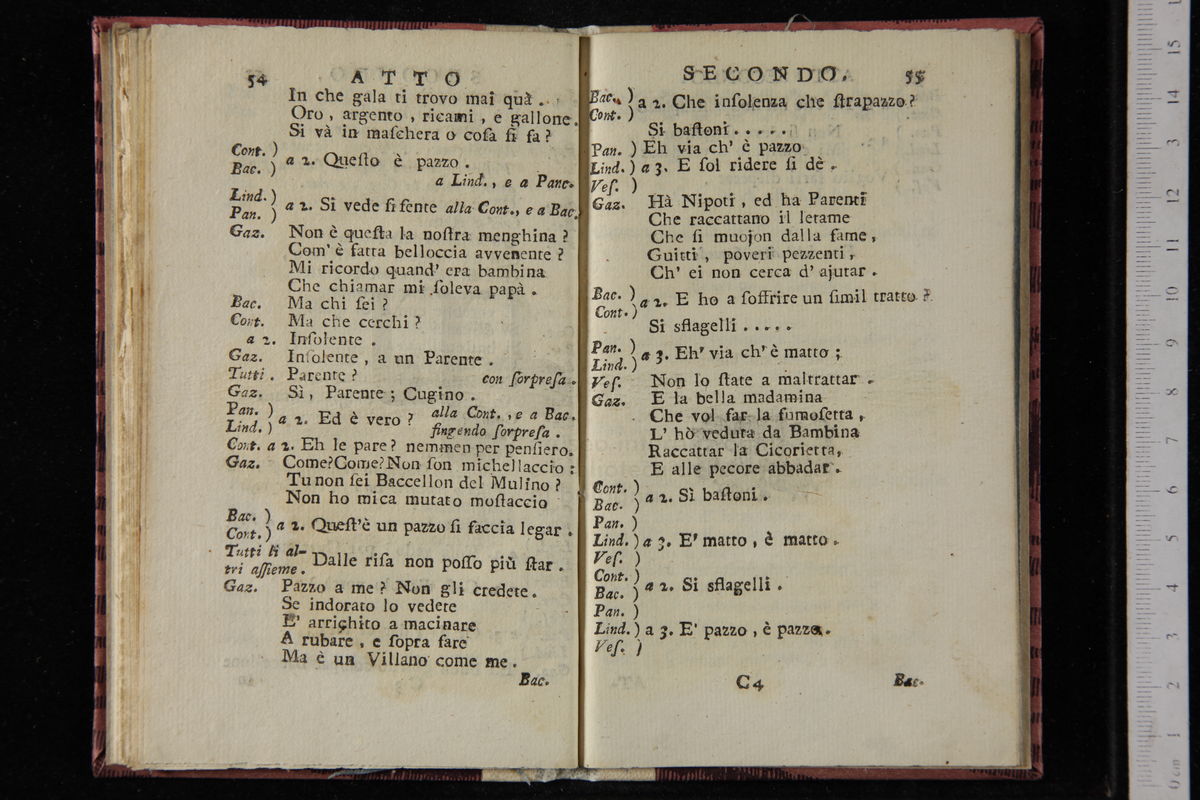 54 ATTO
In che gala ti trovo mai quà .
Oro , argento , ricami , e gallone.
Si và in maſchera o coſa ſi fa ?
Cont. )
Bac. ) a 2. Queſto è pazzo .
a Lind. , e a Panc.
Lind. )
Pan. ) a 2. Si vede ſi ſente alla Cont., e a Bac.
Gaz. Non è queſta la noſtra menghina ?
Com' è fatta belloccia avvenente ?
Mi ricordo quand' era bambina
Che chiamar mi ſoleva papà .
Bac. Ma chi ſei ?
Cont. Ma che cerchi ?
a 2. Inſolente .
Gaz. Inſolente , a un Parente .
Tutti . Parente ? con ſorpreſa .
Gaz. Sì , Parente ; Cugino .
Pan. )
Lind. ) a 2. Ed è vero ? alla Cont. , e a Bac.
fingendo ſorpreſa .
Cont. a 2. Eh le pare ? nemmen per penſiero.
Gaz. Come?Come?Non ſon michellaccio :
Tu non ſei Baccellon del Mulino ?
Non ho mica mutato moſtaccio
Bac. )
Cont. ) a 2. Queſt'è un pazzo ſi faccia legar .
Tutti li al-
tri aſſieme . Dalle riſa non poſſo più ſtar .
Gaz. Pazzo a me ? Non gli credete .
Se indorato lo vedete
E' arrichito a macinare
A rubare , e ſopra fare
Ma è un Villano come me .
Bac.
SECONDO. 55
Bac. )
Cont. ) a 2. Che inſolenza che ſtrapazzo ?
Si baſtoni . . . . .
Pan. ) Eh via ch' è pazzo
Lind. ) a 3. E ſol ridere ſi dè .
Veſ. )
Gaz. Hà Nipoti , ed ha Parenti
Che raccattano il letame
Che ſi muojon dalla fame ,
Guitti , poveri pezzenti ,
Ch' ei non cerca d' ajutar .
Bac. )
Cont. ) a 2. E ho a ſoffrire un ſimil tratto ?
Si sflagelli . . . . .
Pan. )
Lind. ) a 3. Eh' via ch' è matto ;
Veſ. Non lo ſtate a maltrattar .
Gaz. E la bella madamina
Che vol far la fumoſetta ,
L' hò veduta da Bambina
Raccattar la Cicorietta,
E alle pecore abbadar .
Cont. )
Bac. ) a 2. Sì baſtoni .
Pan. )
Lind. ) a 3. E' matto , è matto .
Veſ. )
Cont. )
Bac. ) a 2. Si sflagelli .
Pan. )
Lind. ) a 3. E' pazzo , è pazzo.
Veſ. )
C4 Bac.
0 cm 1 2 3 4 5 6 7 8 9 10 11 12 13 14 15